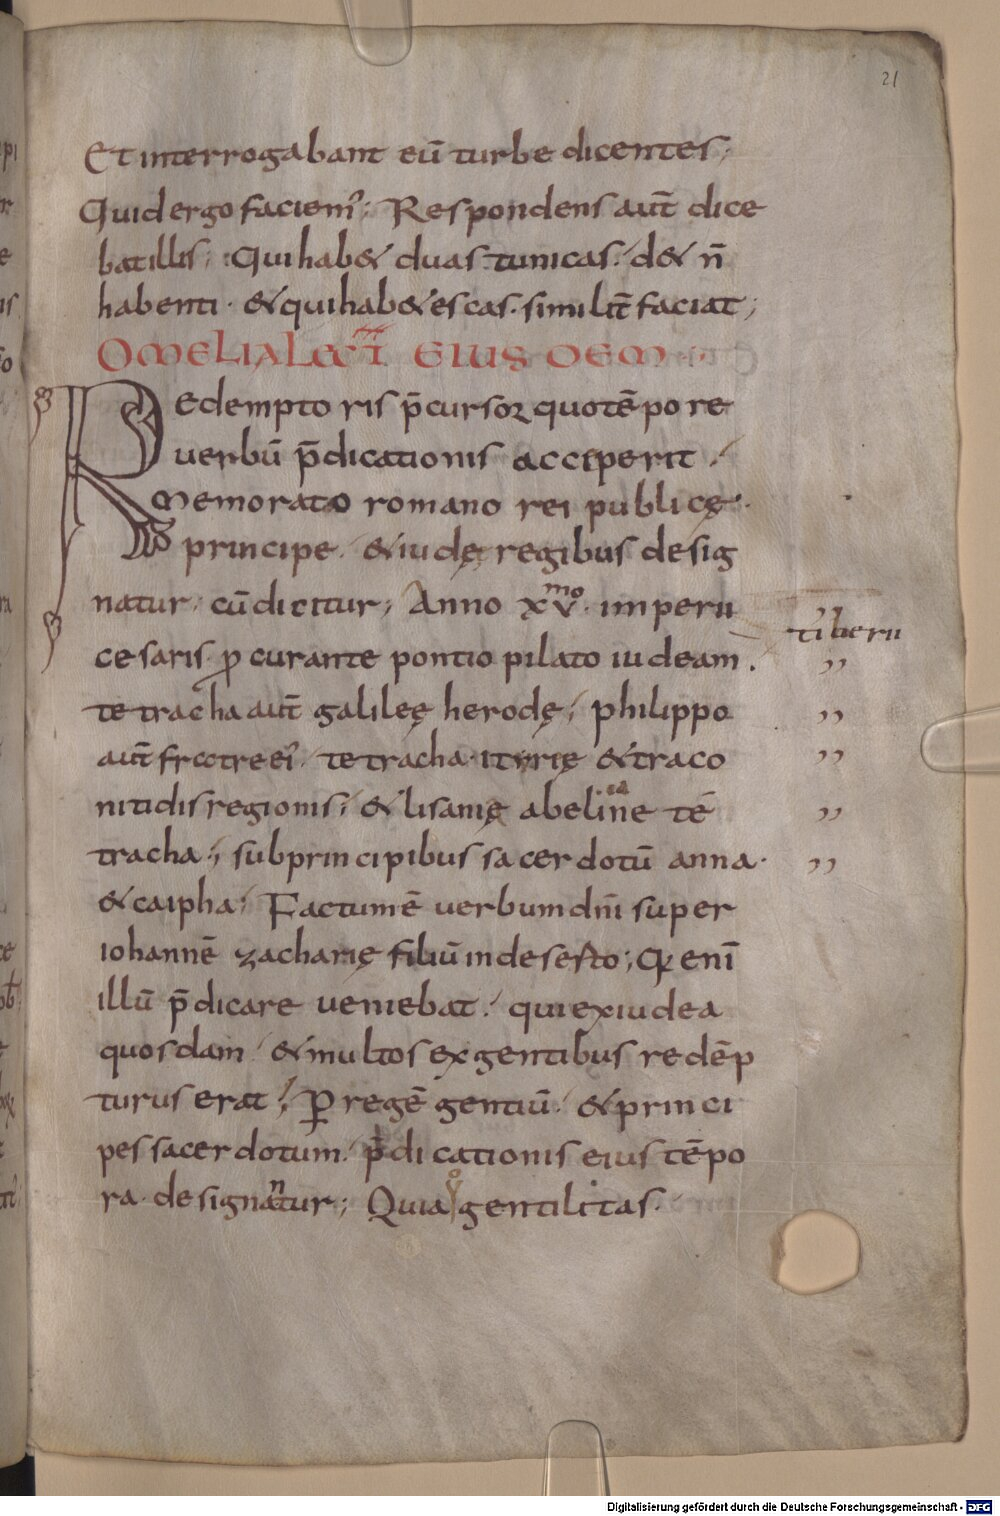 21
Et interrogabant eū turbe dicentes;
Quid ergo faciem᾽; Respondens aut̄ dice
bat illis; Qui hab& duas tunicas. d& n̄
habenti. & qui hab& escas. similit̄ faciat;
OMELIA LECT̄ EIUS DEM
Redemptoris p̄cursor quo tēpore
uerbū p̄dicationis acceperit.
Memorato romano rei publicę.
principe. & iudę regibus desig
natur. cū dicitur; Anno xv᷀ᵐᵒ imperii
tiberii
cesaris. ꝓcurante pontio pilato iudeam.
tetracha aut̄ galileę herodę; philippo
aut̄ frcotre ei᾽. tetracha iturię & traco
nitidis regionis; & lisanię abeline te
tracha; sub principibus sacerdotū anna.
& caipha; Factum ē uerbum dn̄i super
iohannē zacharię filiū in deserto; Q enī
illū p̄dicare ueniebat. qui ex iudea
quosdam. & multos ex gentibus redēp
turus erat; Per regē gentiū. & princi
pes sacerdotum. p̄dicationis eius tēpo
ra designantur; Quia gentilitas.
Digitalisierung gefördert durch die Deutsche Forschungsgemeinschaft - DFG